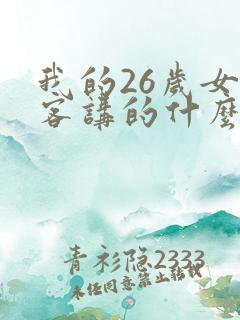 我的26歲女
客講的什麼
青衫隐2333
未经同意禁止转载